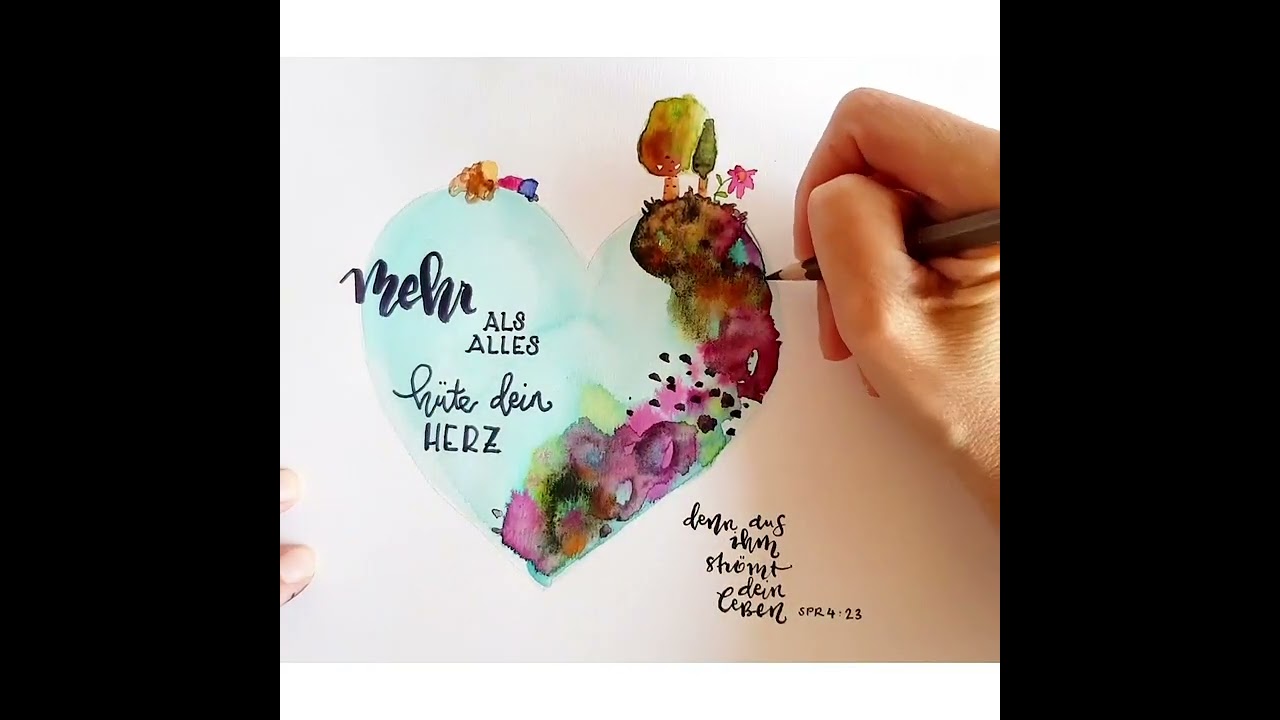 mehr
ALS
ALLES
hüte dein
HERZ
denn aus
ihm
strömt
dein
leBen SPR 4:23